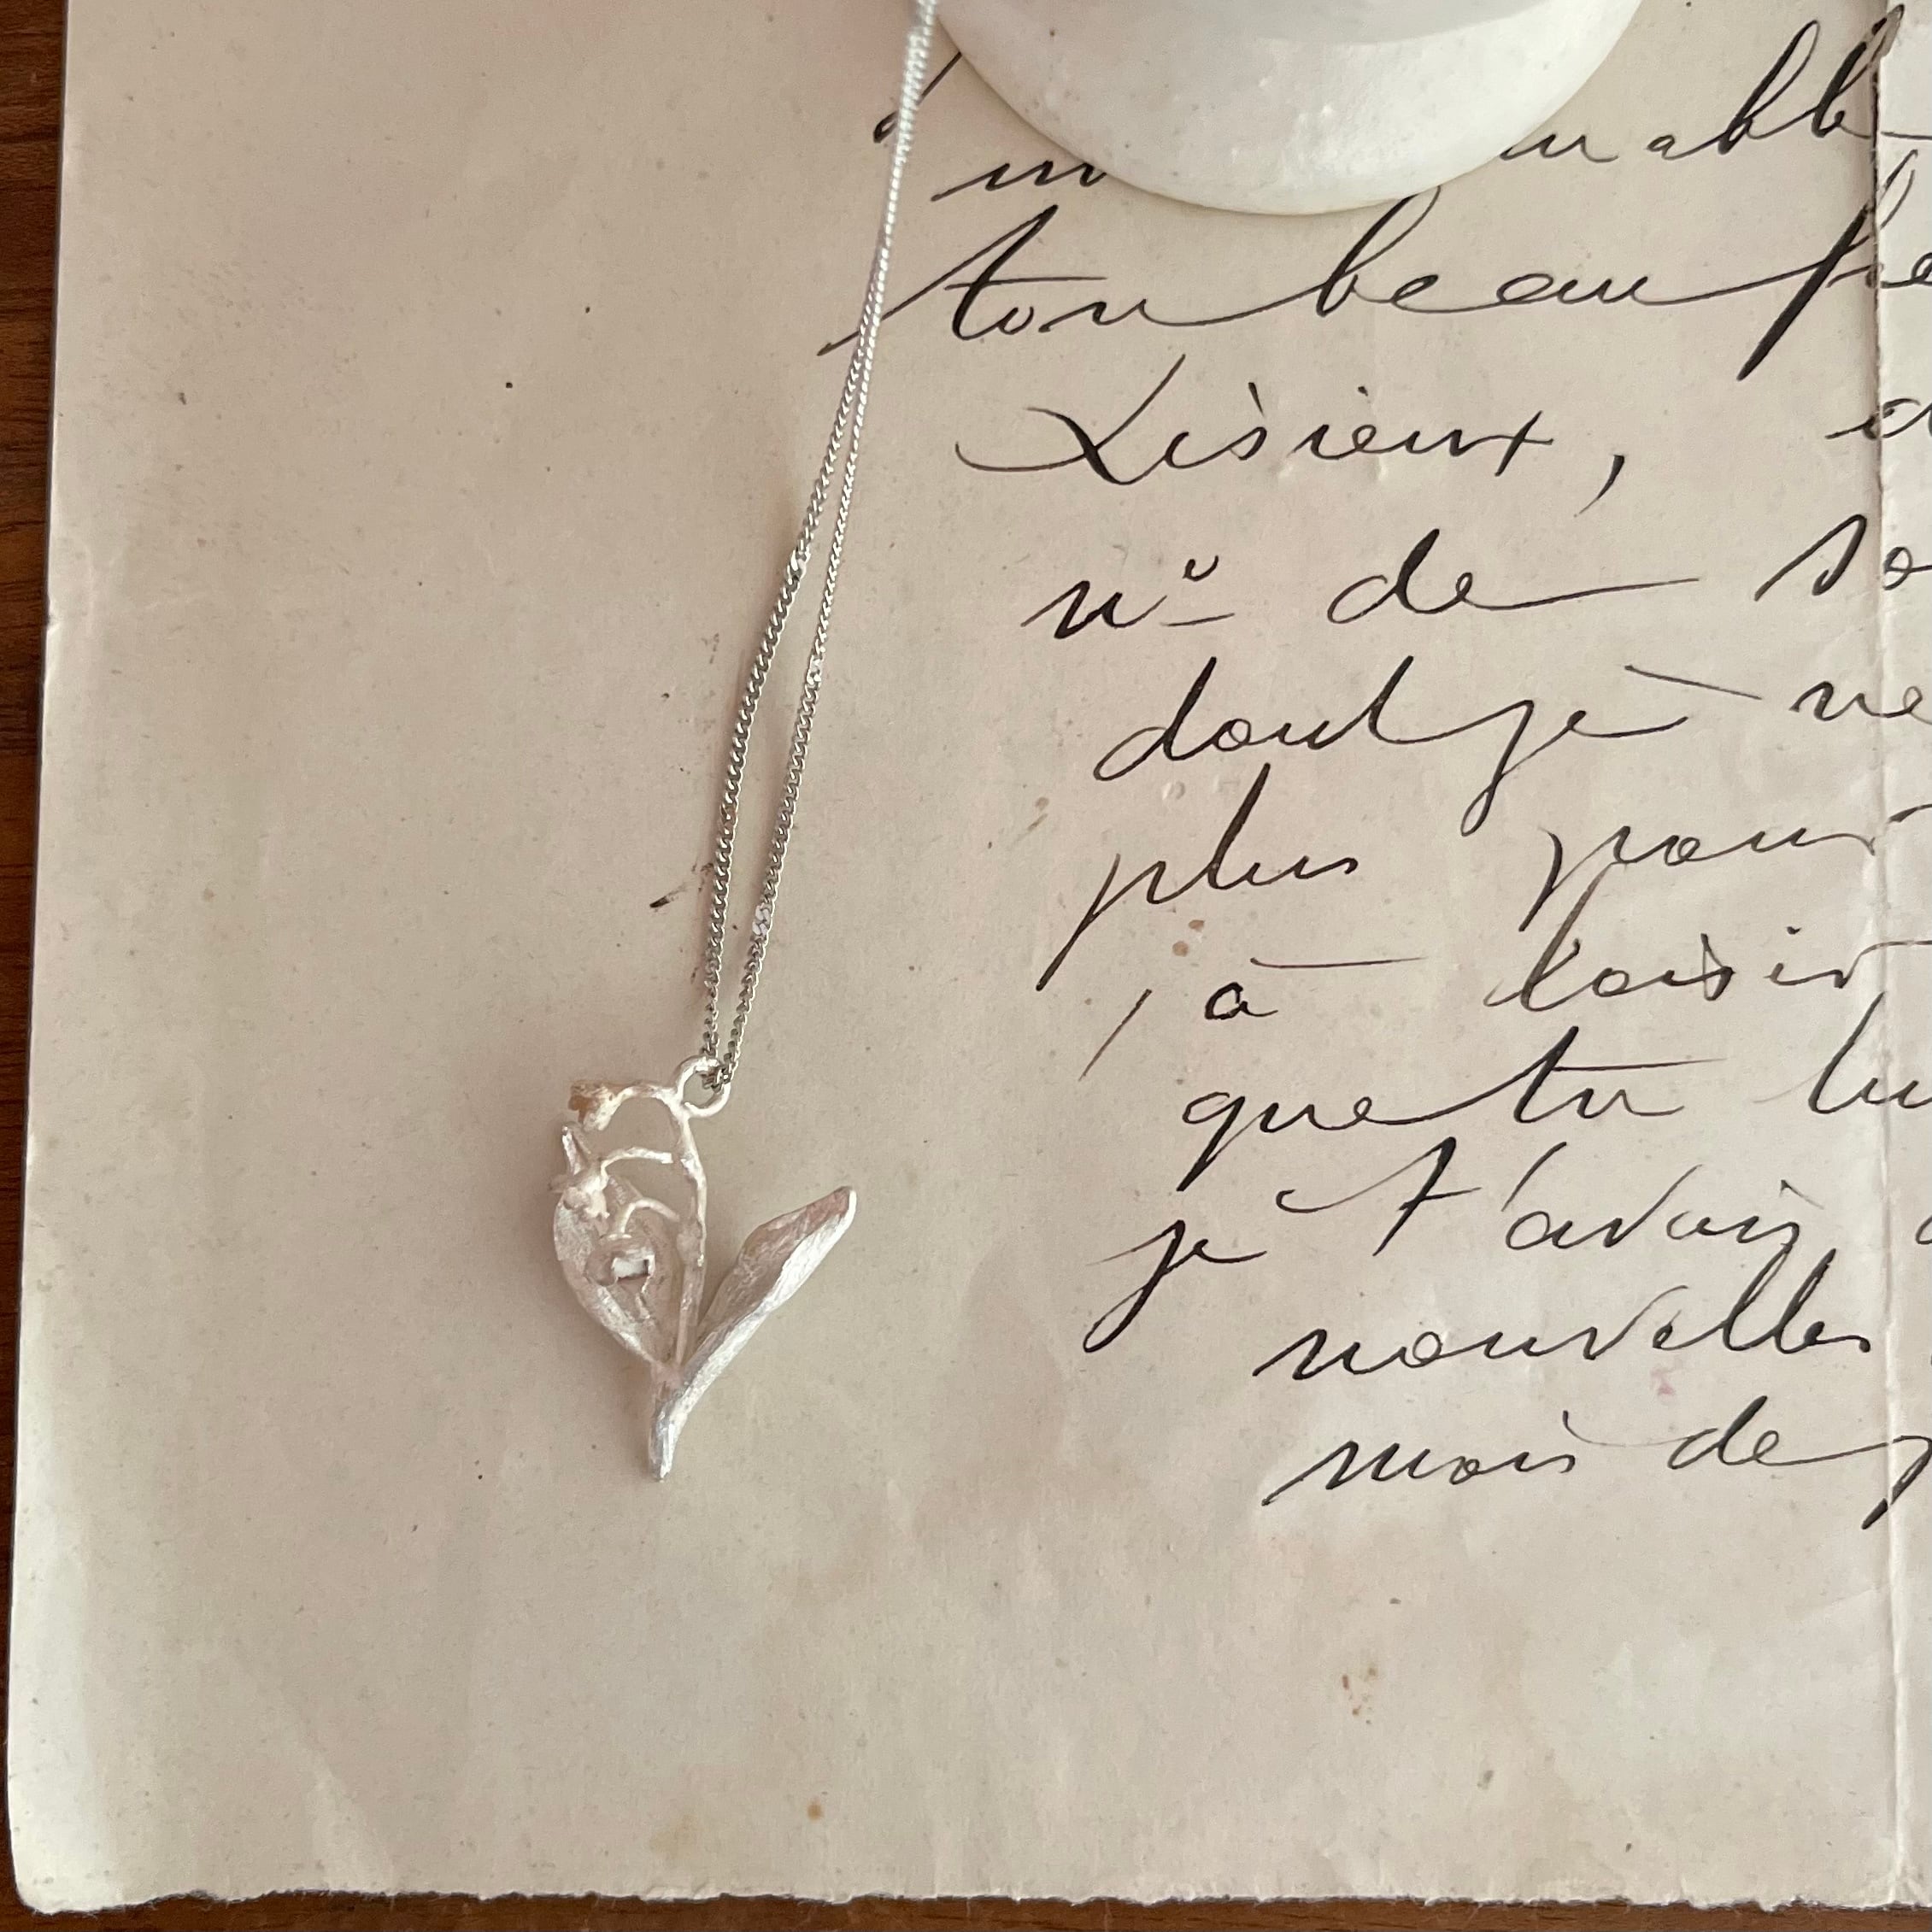 ton beau
Lisieux,
nº de
dont je ne
plus pour
à loisir
que tu
je t'avais
nouvelles
mois de